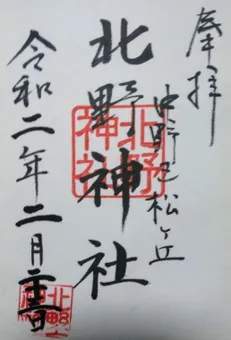 奉拝
中野区松ヶ丘
北野神社
北野
神社
令和二年二月